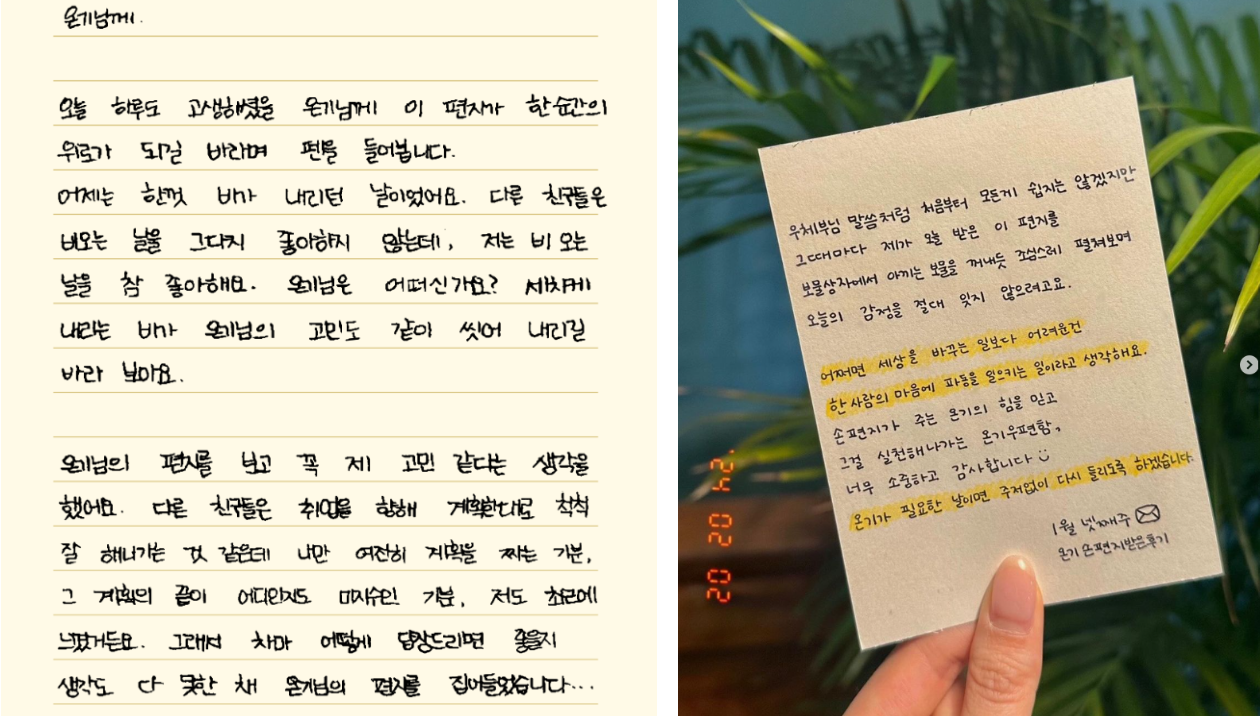 온기님께.
오늘 하루도 고생하셨을 온기님께 이 편지가 한 순간의
위로가 되길 바라며 펜을 들어봅니다.
어제는 한껏 비가 내리던 날이었어요. 다른 친구들은
비오는 날을 그다지 좋아하지 않는데, 저는 비 오는
날을 참 좋아해요. 온기님은 어떠신가요? 세차게
내리는 비가 온기님의 고민도 같이 씻어 내리길
바라 보아요.
온기님의 편지를 보고 꼭 제 고민 같다는 생각을
했어요. 다른 친구들은 취업을 향해 계획한대로 척척
잘 해나가는 것 같은데 나만 여전히 계획을 짜는 기분,
그 계획의 끝이 어디인지도 미지수인 기분, 저도 최근에
느꼈거든요. 그래서 차마 어떻게 답장드리면 좋을지
생각도 다 못한 채 온기님의 편지를 집어들었습니다...
우체부님 말씀처럼 처음부터 모든게 쉽지는 않겠지만
그때마다 제가 오늘 받은 이 편지를
보물상자에서 아끼는 보물을 꺼내듯 조심스레 펼쳐보며
오늘의 감정을 절대 잊지 않으려고요.
어쩌면 세상을 바꾸는 일보다 어려운건
한 사람의 마음에 파동을 일으키는 일이라고 생각해요.
손편지가 주는 온기의 힘을 믿고
그걸 실천해나가는 온기우편함,
너무 소중하고 감사합니다
온기가 필요한 날이면 주저없이 다시 들리도록 하겠습니다.
1월 넷째주
온기 손편지받은후기
'24 02 02